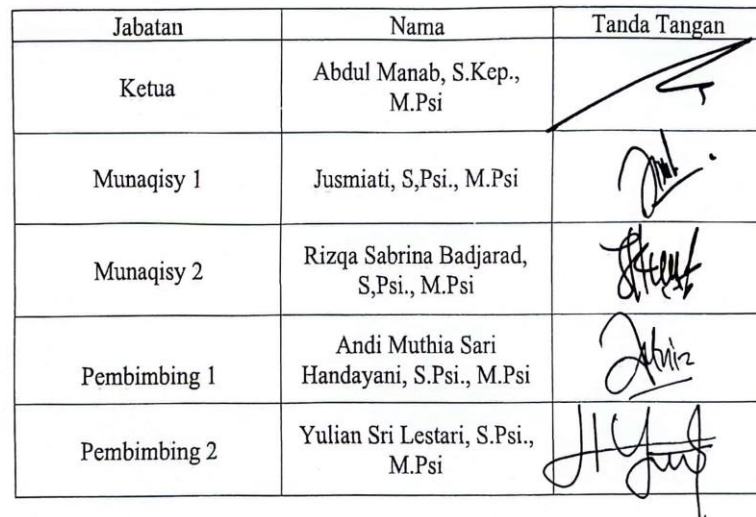 Jabatan Nama Tanda Tangan
Ketua Abdul Manab, S.Kep.,
M.Psi
Munaqisy 1 Jusmiati, S,Psi., M.Psi
Munaqisy 2 Rizqa Sabrina Badjarad,
S,Psi., M.Psi
Pembimbing 1 Andi Muthia Sari
Handayani, S.Psi., M.Psi
Pembimbing 2 Yulian Sri Lestari, S.Psi.,
M.Psi